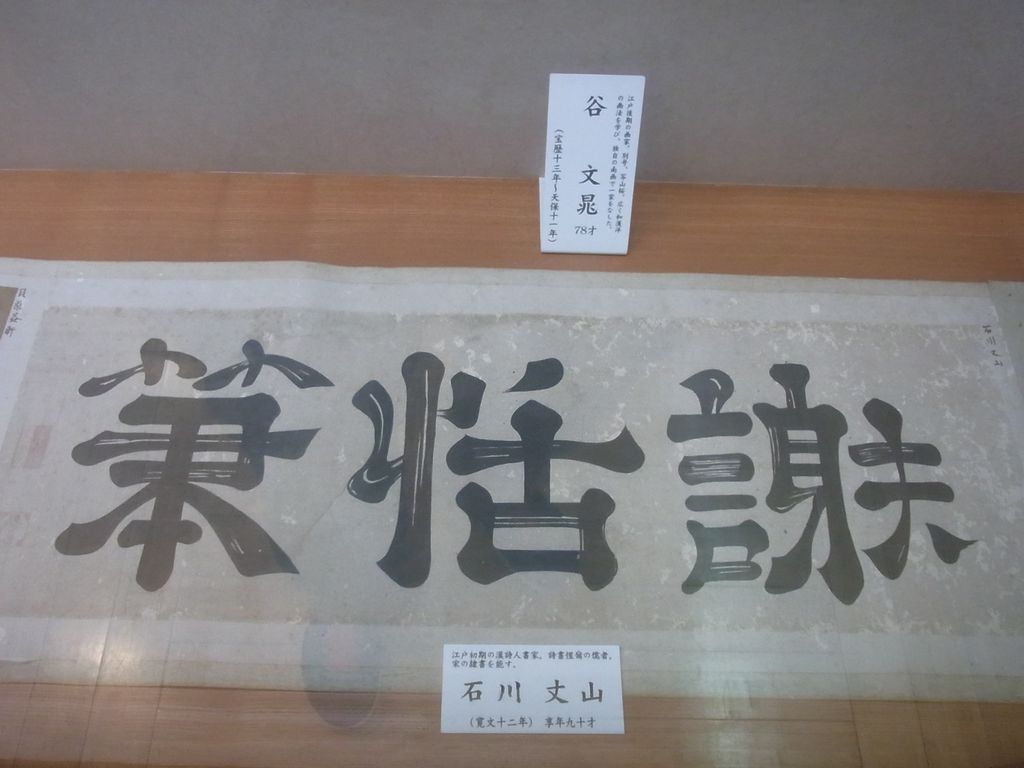 江戸後期の画家。別号、写山楼。広く和漢洋
の画法を学び、独自の南画で一家をなした。
谷 文晁 78才
(宝暦十三年~天保十一年)
石川丈山
謝恬筆
貝原益軒
江戸初期の漢詩人書家。詩書惺窩の儒者。
家の隷書を能す。
石川 丈山
(寛文十二年) 享年九十才